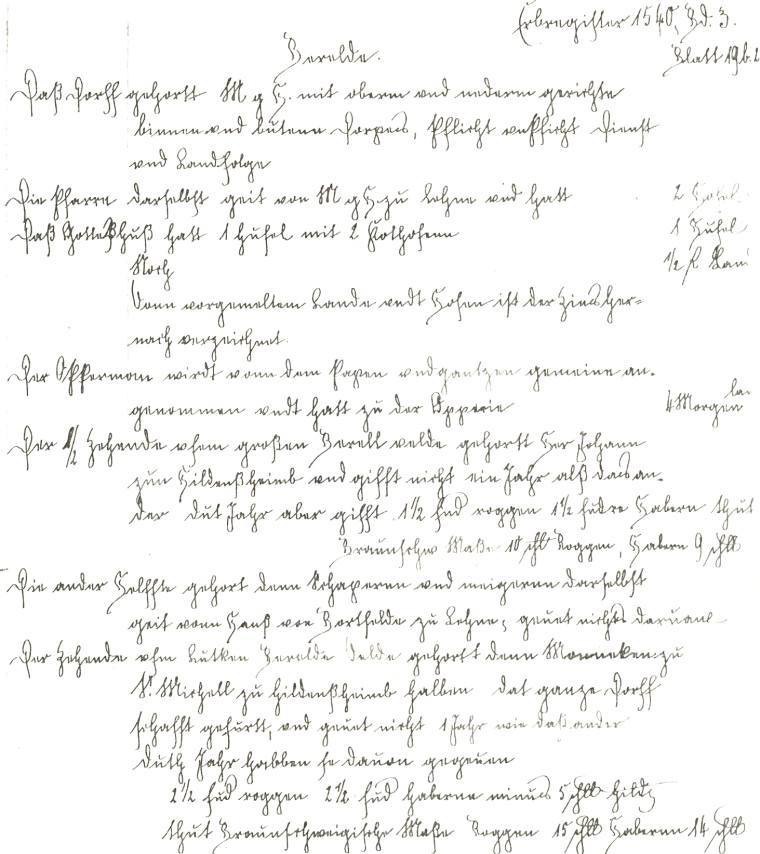 Erbregister 1540, Bd. 3.
Berelde.
Blatt 19b.
Daß Dorff gehortt M g H. mit oberm und nederm gerichte
binnen und butenn Dorpes, Pflicht unPflicht Dienst
und Landfolge
Die Pfarre darselbst geit von M g H. zu Lehne und hatt
2
Daß GottesHuß hatt 1 hufel mit 2 Kothofenn
1 Hufel
Noch
1/2
Vonn vorgemeltem Lande undt Hofen ist der Zins her=
nach verzeichnet.
Der Opperman wirdt vonn dem Papen und gantzen gemeine an=
genommen undt hatt zu der Opperie
4 Morgen lan
Der 1/2 Zehende uhem großen Berell velde gehortt Her Johann
zun Hildenßheimb und gifft nicht ein Jahr alß das an=
der dut Jahr aber gifft 1 1/2 fud roggen 1 1/2 fudre Habern thut
Braunschw Maße 10 schll Roggen, Habern 9 schll
Die ander Helffte gehort denn Schapernn und meigernn darselbst
geit vonn Hanß von Bortfelde zu Lehne, geuet nichts daruan
Der Zehende uhm Lutken Berelde Velde gehortt denn Monneken zu
St. Michell zu Hildenßheimb halben dat ganze Dorff
schafft gefurtt, und geuet nicht 1 Jahr wie daß ander
duth Jahr habben se dauon gegeuen
2 1/2 fud roggen 2 1/2 fud haberne minus 5 schll hildß
thut Braunschweigische Maße Roggen 15 schll Habernn 14 schll